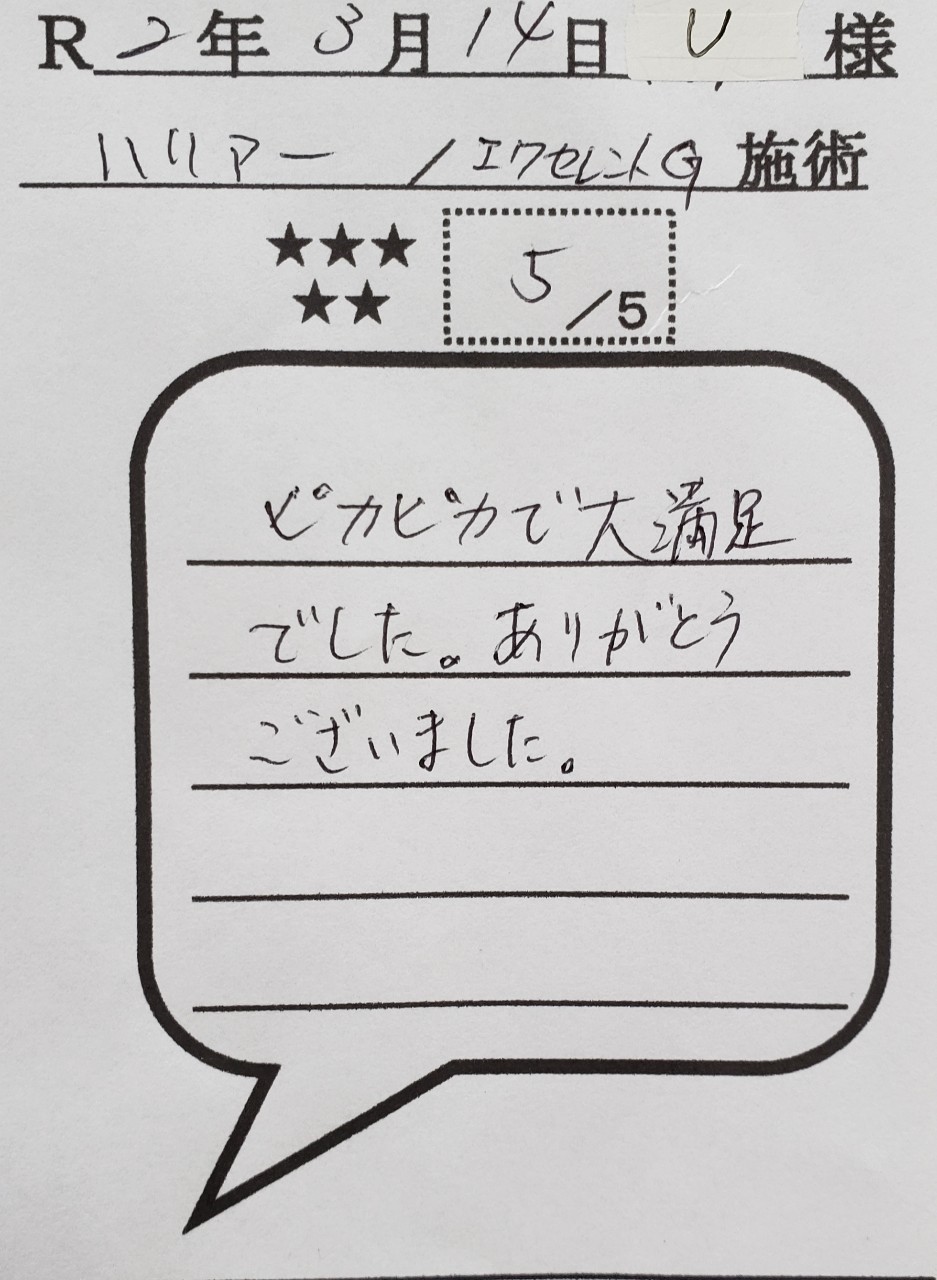 R2年3月14日 U 様
ハリアー/エクセレントG 施術
★★★
★★
5/5
ピカピカで大満足
でした。ありがとう
ございました。